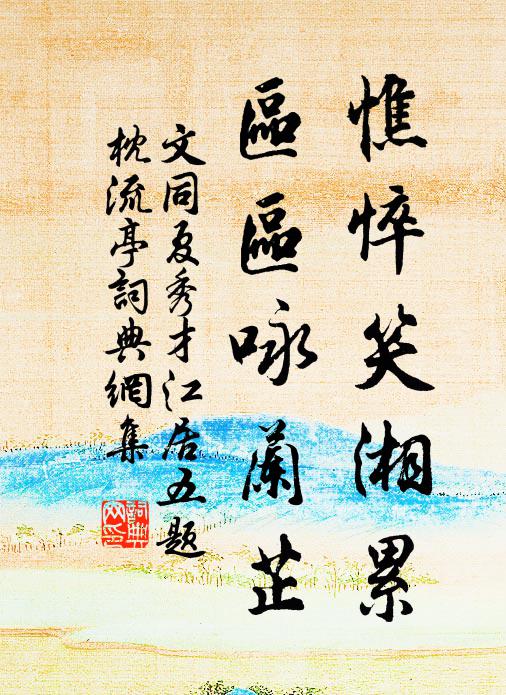 憔悴笑湘累
區區咏蘭芷
文同夏秀才江居五題
枕流亭詞典網集
詞典網印